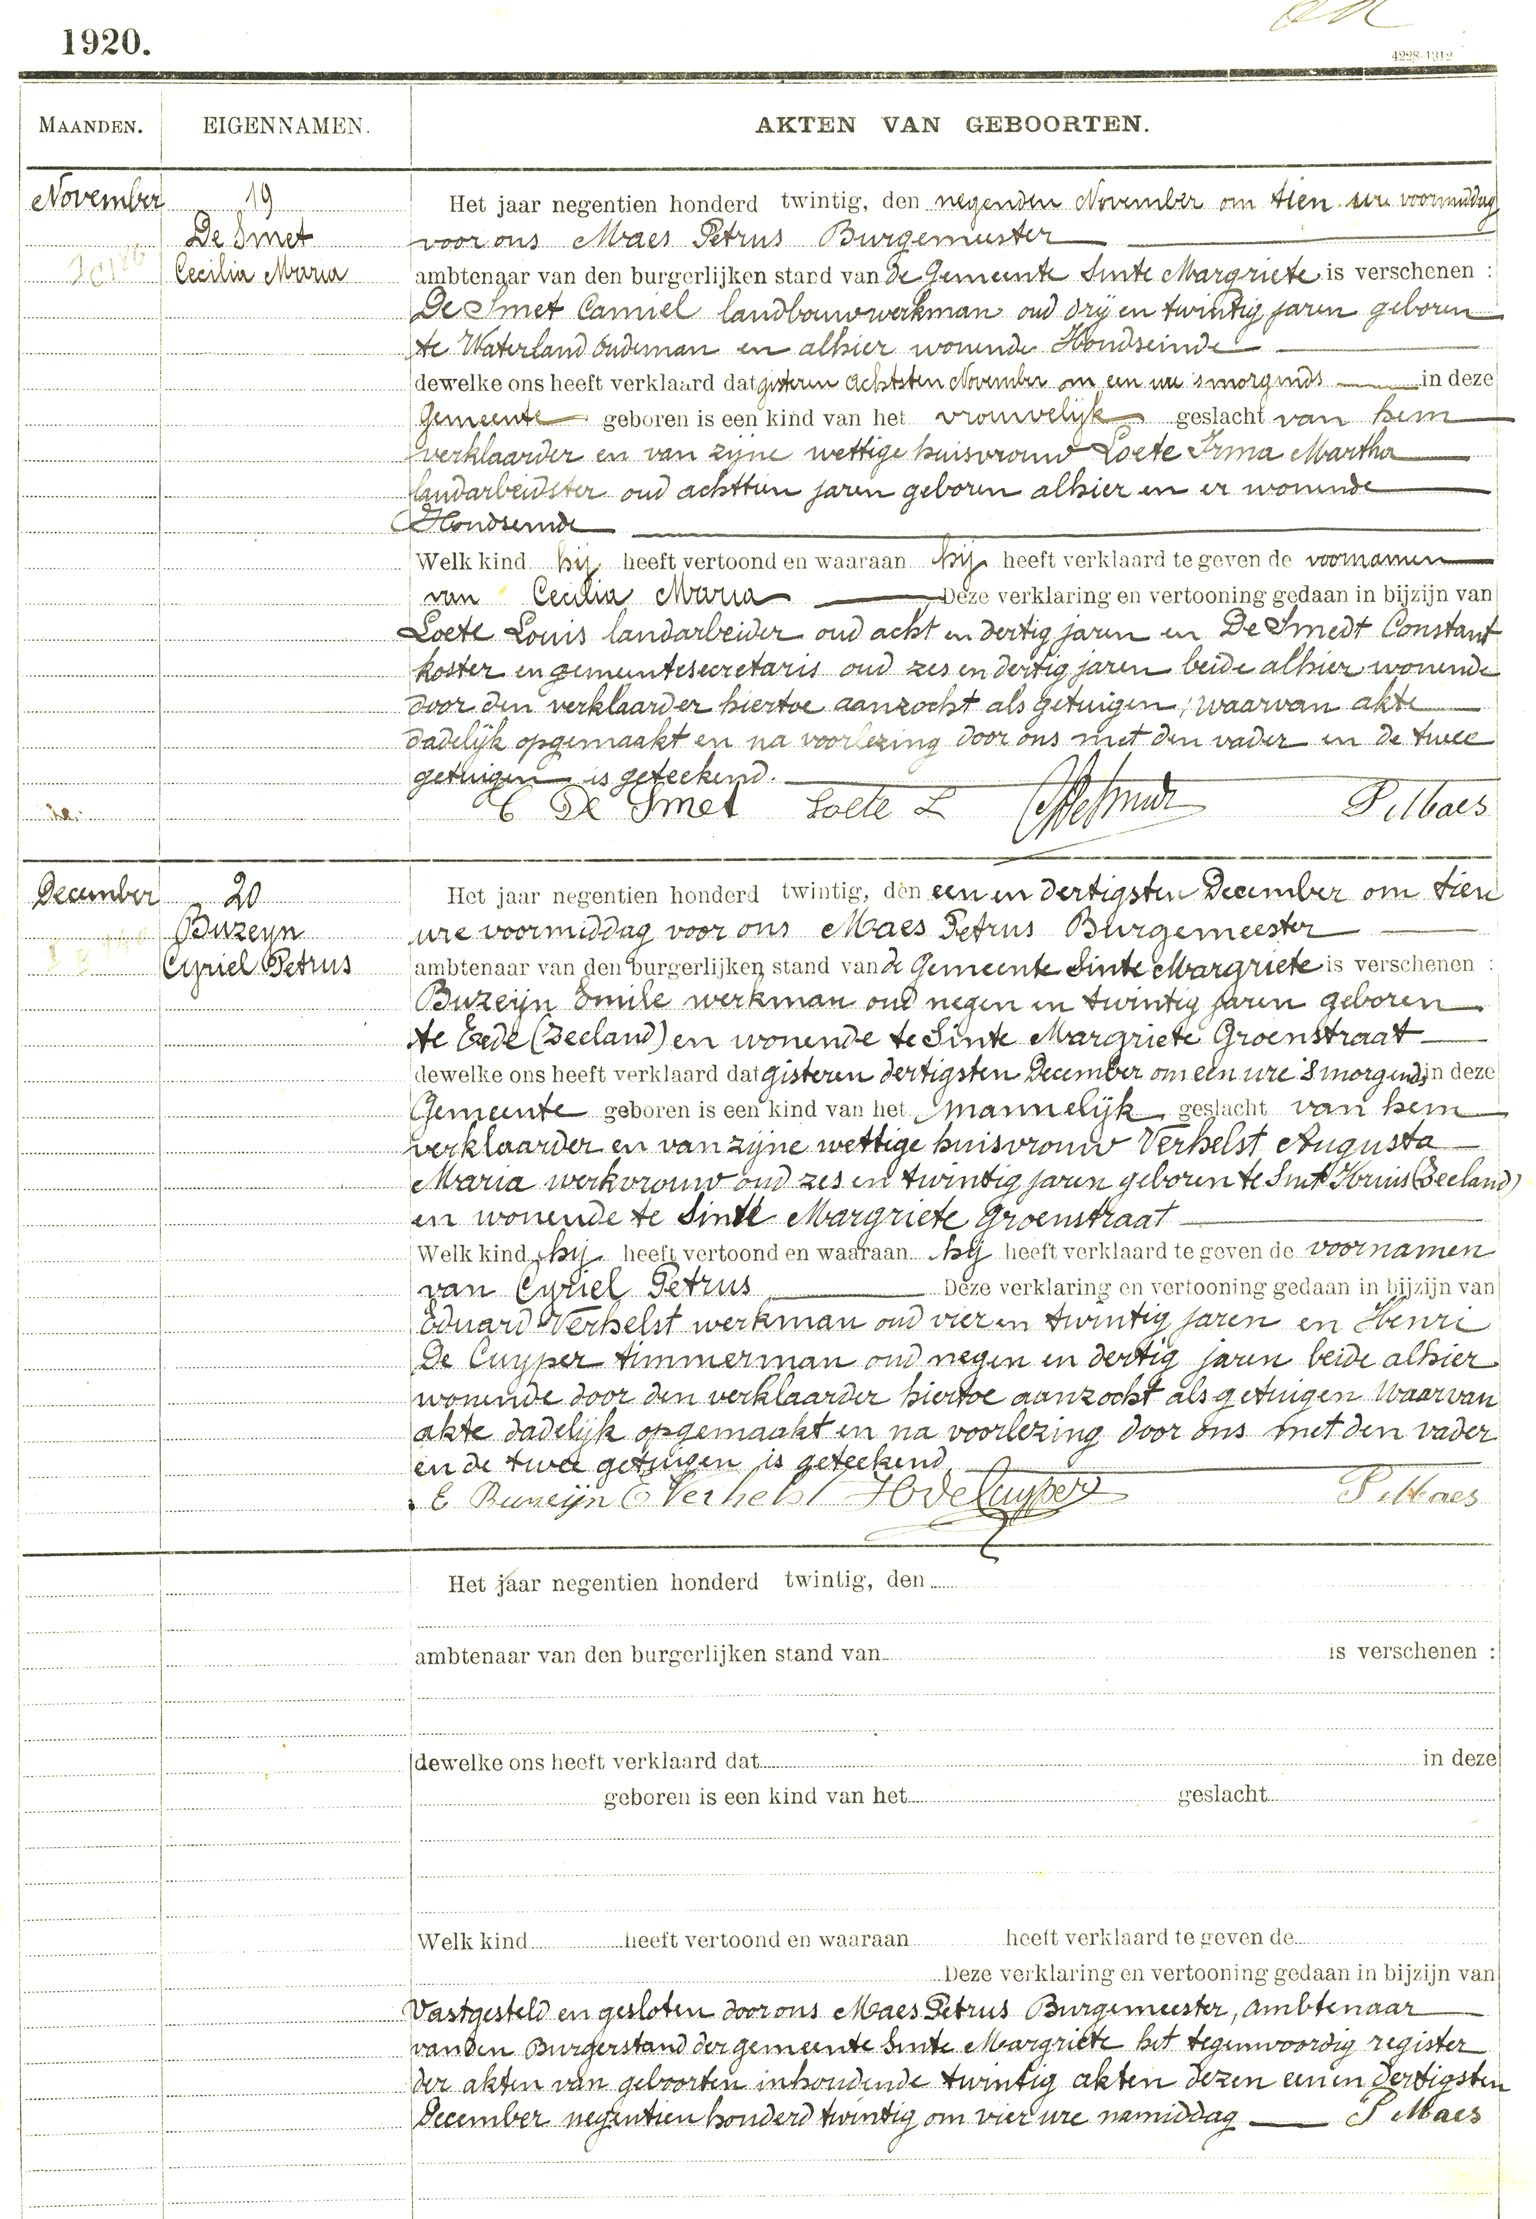 1920.
4228-1312
MAANDEN.
EIGENNAMEN.
AKTEN VAN GEBOORTEN.
November
19
De Smet
Cecilia Maria
Het jaar negentien honderd twintig, den negenden November om tien ure voormiddag
voor ons Maes Petrus Burgemeester
ambtenaar van den burgerlijken stand van de Gemeente Sinte Margriete is verschenen :
De Smet Camiel landbouwwerkman oud drij en twintig jaren geboren
te Waterland Oudeman en alhier wonende Hondseinde
dewelke ons heeft verklaard dat gisteren achtsten November om een ure 's morgends in deze
Gemeente geboren is een kind van het vrouwelijk geslacht van hem
verklaarder en van zijne wettige huisvrouw Loete Irma Martha
landarbeidster oud achttien jaren geboren alhier en er wonende
Hondseinde
Welk kind hij heeft vertoond en waaraan hij heeft verklaard te geven de voornamen
van Cecilia Maria Deze verklaring en vertooning gedaan in bijzijn van
Loete Louis landarbeider oud acht en dertig jaren en De Smedt Constant
koster en gemeentesecretaris oud zes en dertig jaren beide alhier wonende
door den verklaarder hiertoe aanzocht als getuigen, waarvan akte
dadelijk opgemaakt en na voorlezing door ons met den vader en de twee
getuigen is geteekend.
C De Smet Loete L P Maes
December
20
Buzeyn
Cyriel Petrus
Het jaar negentien honderd twintig, den een en dertigsten December om tien
ure voormiddag voor ons Maes Petrus Burgemeester
ambtenaar van den burgerlijken stand van de Gemeente Sinte Margriete is verschenen :
Buzeijn Emile werkman oud negen en twintig jaren geboren
te Eede (Zeeland) en wonende te Sinte Margriete Groenstraat
dewelke ons heeft verklaard dat gisteren dertigsten December om een ure 's morgends in deze
Gemeente geboren is een kind van het mannelijk geslacht van hem
verklaarder en van zijne wettige huisvrouw Verhelst Augusta
Maria werkvrouw oud zes en twintig jaren geboren te Sint Kruis (Zeeland)
en wonende te Sinte Margriete Groenstraat
Welk kind hij heeft vertoond en waaraan hij heeft verklaard te geven de voornamen
van Cyriel Petrus Deze verklaring en vertooning gedaan in bijzijn van
Eduard Verhelst werkman oud vier en twintig jaren en Henri
De Cuyper timmerman oud negen en dertig jaren beide alhier
wonende door den verklaarder hiertoe aanzocht als getuigen waarvan
akte dadelijk opgemaakt en na voorlezing door ons met den vader
en de twee getuigen is geteekend
E Buzeijn E Verhelst H De Cuyper P Maes
Het jaar negentien honderd twintig, den
ambtenaar van den burgerlijken stand van is verschenen :
dewelke ons heeft verklaard dat in deze
geboren is een kind van het geslacht
Welk kind heeft vertoond en waaraan heeft verklaard te geven de
Deze verklaring en vertooning gedaan in bijzijn van
Vastgesteld en gesloten door ons Maes Petrus Burgemeester, ambtenaar
van den Burgerstand der gemeente Sinte Margriete het tegenwoordig register
der akten van geboorten inhoudende twintig akten dezen een en dertigsten
December negentien honderd twintig om vier ure namiddag P Maes